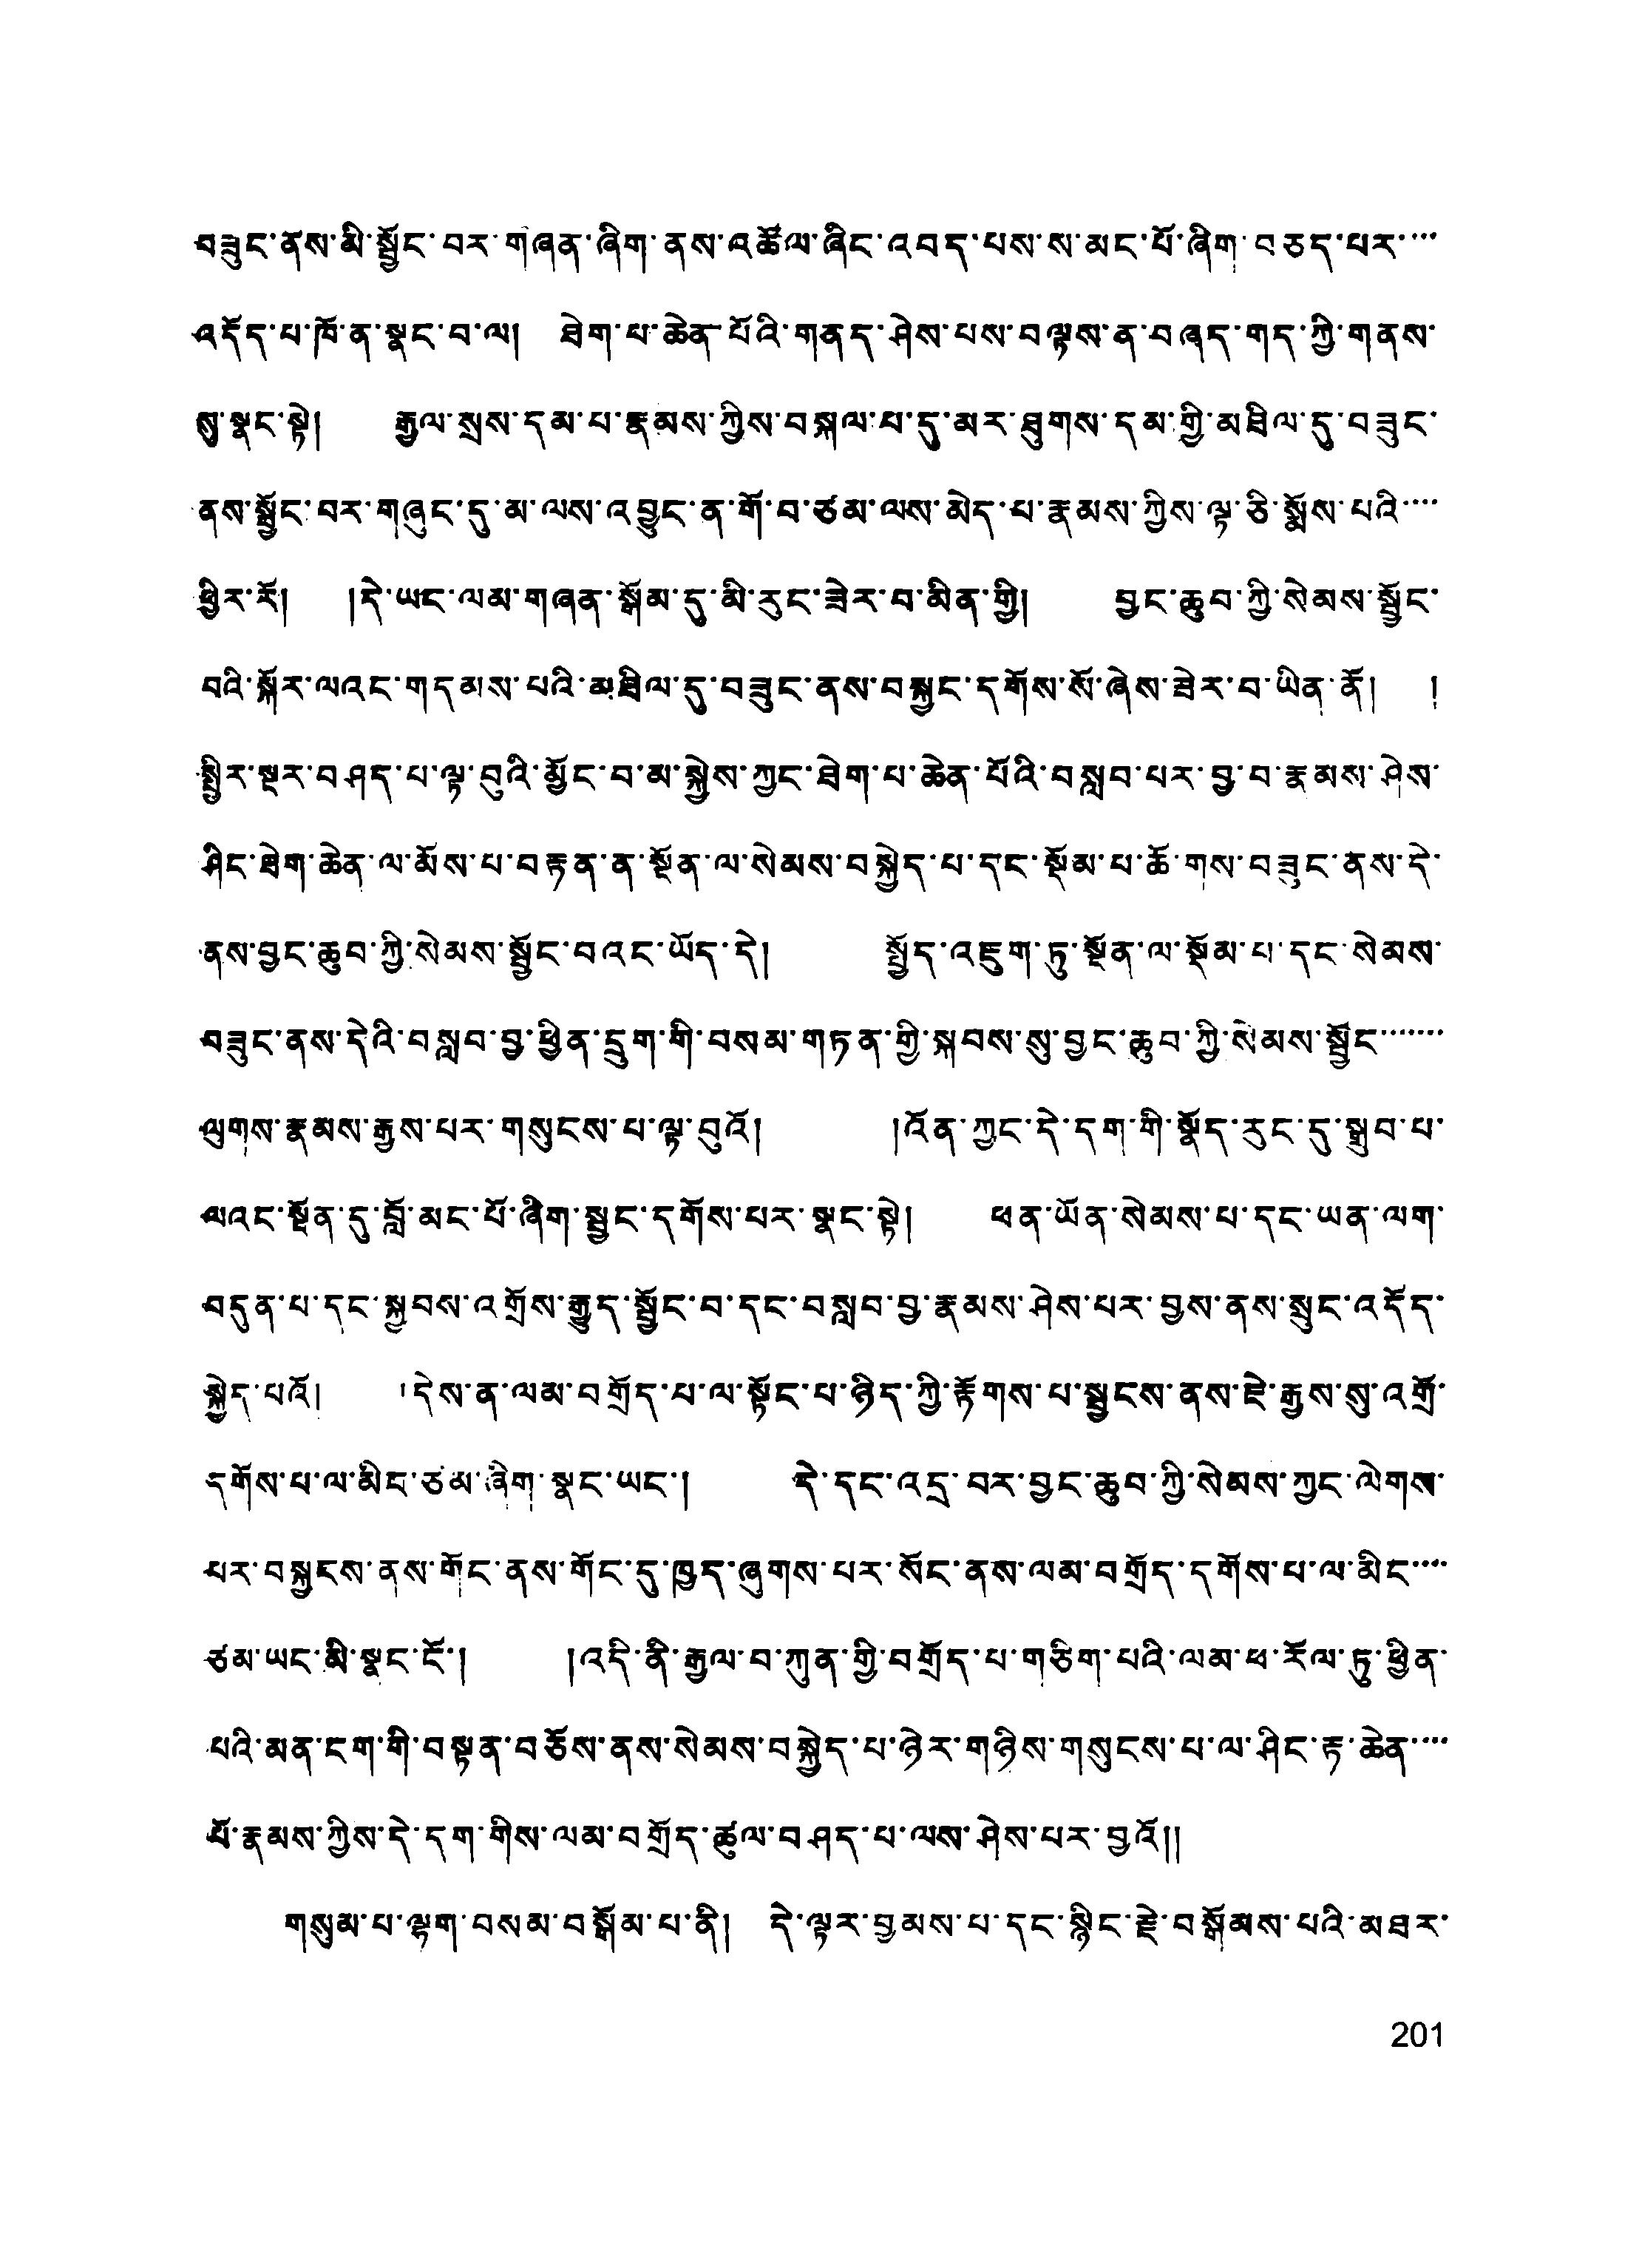 བཟུང་ནས་མི་སྦྱོང་བར་གཞན་ཞིག་ནས་འཚོལ་ཞིང་འབད་པས་ས་མང་པོ་ཞིག་བཅད་པར་····
འདོད་པ་ཁོ་ན་སྣང་བ་ལ། ཐེག་པ་ཆེན་པོའི་གནད་ཤེས་པས་བལྟས་ན་བཞད་གད་ཀྱི་གནས་
སུ་སྣང་སྟེ། རྒྱལ་སྲས་དམ་པ་རྣམས་ཀྱིས་བསྐལ་པ་དུ་མར་ཐུགས་དམ་གྱི་མཐིལ་དུ་བཟུང་
ནས་སྦྱོང་བར་གཞུང་དུ་མ་ལས་འབྱུང་ན་གོ་བ་ཙམ་ལས་མེད་པ་རྣམས་ཀྱིས་ལྟ་ཅི་སྨོས་པའི་····
ཕྱིར་རོ། །དེ་ཡང་ལམ་གཞན་སྒོམ་དུ་མི་རུང་ཟེར་བ་མིན་གྱི། བྱང་ཆུབ་ཀྱི་སེམས་སྦྱོང་
བའི་སྐོར་ལའང་གདམས་པའི་མཐིལ་དུ་བཟུང་ནས་བསྐྱང་དགོས་སོ་ཞེས་ཟེར་བ་ཡིན་ནོ། །
སྤྱིར་སྔར་བཤད་པ་ལྟ་བུའི་མྱོང་བ་མ་སྐྱེས་ཀྱང་ཐེག་པ་ཆེན་པོའི་བསླབ་པར་བྱ་བ་རྣམས་ཤེས་
ཤིང་ཐེག་ཆེན་ལ་མོས་པ་བརྟན་ན་སྔོན་ལ་སེམས་བསྐྱེད་པ་དང་སྡོམ་པ་ཆོ་གས་བཟུང་ནས་དེ་
ནས་བྱང་ཆུབ་ཀྱི་སེམས་སྦྱོང་བའང་ཡོད་དེ། སྤྱོད་འཇུག་ཏུ་སྔོན་ལ་སྡོམ་པ་དང་སེམས་
བཟུང་ནས་དེའི་བསླབ་བྱ་ཕྱིན་དྲུག་གི་བསམ་གཏན་གྱི་སྐབས་སུ་བྱང་ཆུབ་ཀྱི་སེམས་སྦྱོང·······
ལུགས་རྣམས་རྒྱས་པར་གསུངས་པ་ལྟ་བུའོ། །འོན་ཀྱང་དེ་དག་གི་སྣོད་རུང་དུ་སྒྲུབ་པ་
ལའང་སྔོན་དུ་བློ་མང་པོ་ཞིག་སྦྱང་དགོས་པར་སྣང་སྟེ། ཕན་ཡོན་སེམས་པ་དང་ཡན་ལག་
བདུན་པ་དང་སྐྱབས་འགྲོས་རྒྱུད་སྦྱོང་བ་དང་བསླབ་བྱ་རྣམས་ཤེས་པར་བྱས་ནས་སྲུང་འདོད་
སྐྱེད་པའོ། །དེས་ན་ལམ་བགྲོད་པ་ལ་སྟོང་པ་ཉིད་ཀྱི་རྟོགས་པ་སྦྱངས་ནས་ཇེ་རྒྱས་སུ་འགྲོ་
དགོས་པ་ལ་མིང་ཙམ་ཞིག་སྣང་ཡང་། དེ་དང་འདྲ་བར་བྱང་ཆུབ་ཀྱི་སེམས་ཀྱང་ལེགས་
པར་བསྐྱངས་ནས་གོང་ནས་གོང་དུ་ཁྱད་ཞུགས་པར་སོང་ནས་ལམ་བགྲོད་དགོས་པ་ལ་མིང་····
ཙམ་ཡང་མི་སྣང་ངོ་། །འདི་ནི་རྒྱལ་བ་ཀུན་གྱི་བགྲོད་པ་གཅིག་པའི་ལམ་ཕ་རོལ་ཏུ་ཕྱིན་
པའི་མན་ངག་གི་བསྟན་བཅོས་ནས་སེམས་བསྐྱེད་པ་ཉེར་གཉིས་གསུངས་པ་ལ་ཤིང་རྟ་ཆེན་····
པོ་རྣམས་ཀྱིས་དེ་དག་གིས་ལམ་བགྲོད་ཚུལ་བཤད་པ་ལས་ཤེས་པར་བྱའོ།།
གསུམ་པ་ལྷག་བསམ་བསྒོམ་པ་ནི། དེ་ལྟར་བྱམས་པ་དང་སྙིང་རྗེ་བསྒོམས་པའི་མཐར་
201